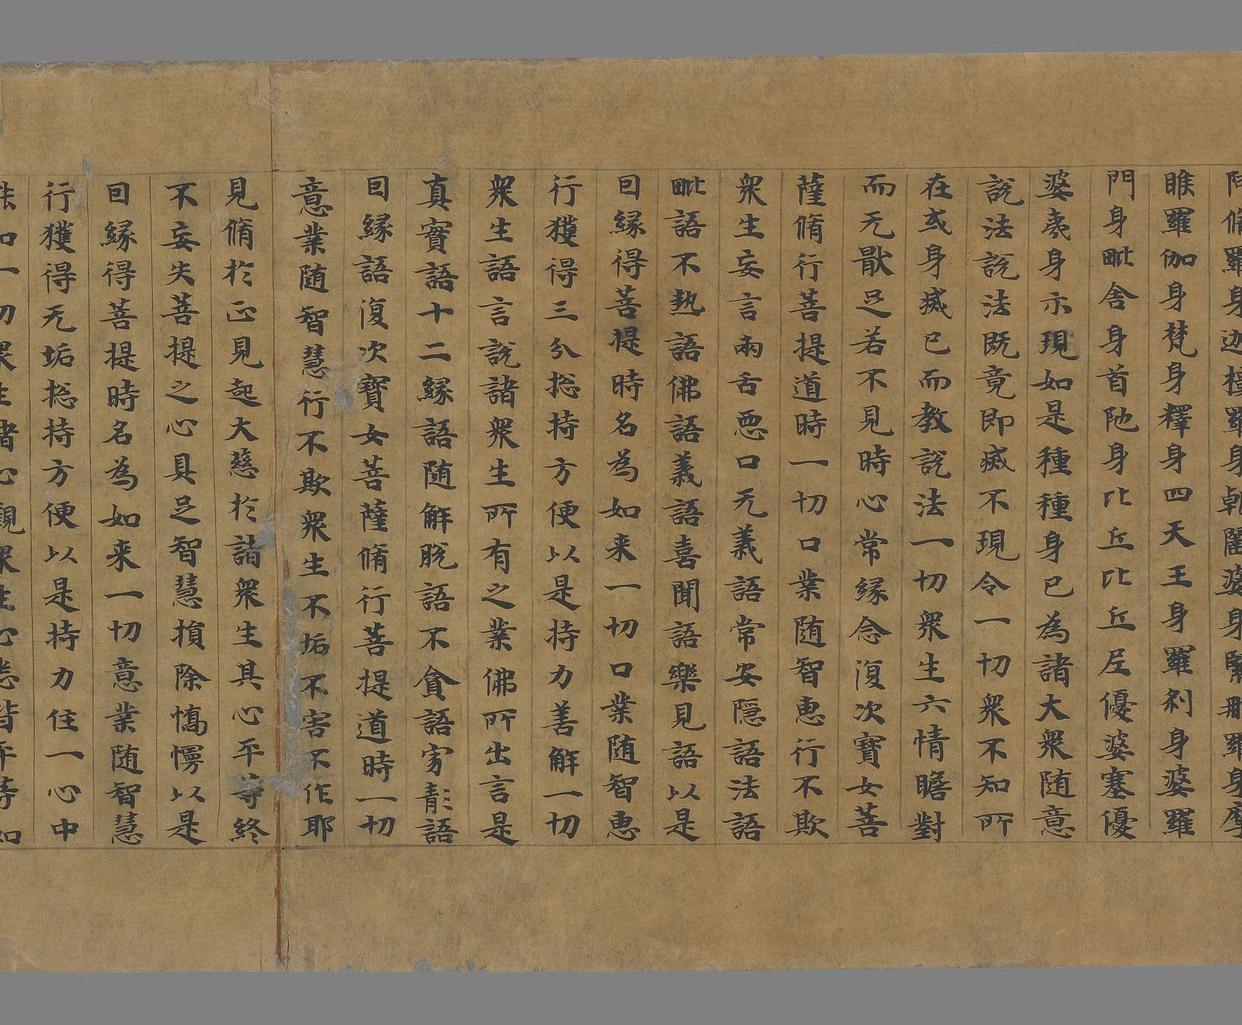 阿脩羅身迦樓羅身乹闥婆身緊那羅身摩
睺羅伽身梵身釋身四天王身羅刹身婆羅
門身毗舍身首陁身比丘比丘尼優婆塞優
婆夷身示現如是種種身已為諸大衆随意
説法説法既竟即滅不現令一切衆不知所
在或身滅已而教説法一切衆生六情瞻對
而无猒足若不見時心常縁念復次寶女菩
薩脩行菩提道時一切口業随智恵行不欺
衆生妄言兩舌悪口无義語常安隱語法語
毗語不熱語佛語義語喜聞語樂見語以是
因縁得菩提時名為如来一切口業随智恵
行獲得三分捴持方便以是持力善解一切
衆生語言說諸衆生所有之業佛所出言是
真實語十二縁語随解脱語不貪語
因縁語復次寶女菩薩脩行菩提道時一切
意業随智慧行不欺衆生不垢不害不作耶
見脩於正見起大慈於諸衆生其心平等終
不妄失菩提之心具足智慧損除憍慢以是
因縁得菩提時名為如来一切意業随智慧
行獲得无垢捴持方便以是持力住一心中
知一切衆生諸心觀衆生心悉皆平等如